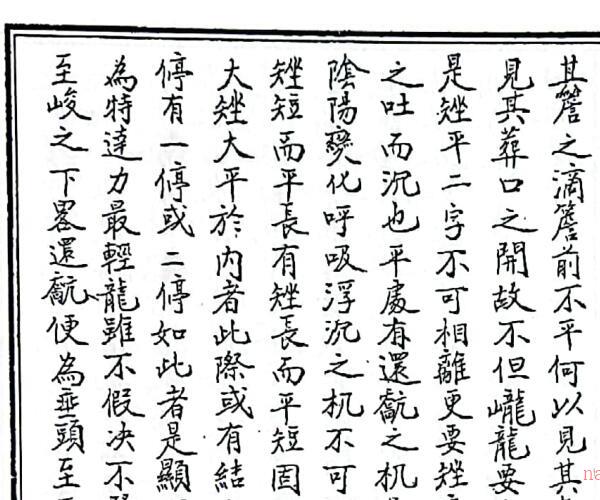 其簷之滴簷前不平何以見其
見其葬口之開故不但巃龍要
是矬平二字不可相離更要矬
之吐而沉也平處有還龥之机
陰陽變化呼吸浮沉之机不可
矬短而平長有矬長而平短固
大矬大平於內者此際或有結
停有一停或二停如此者是顯
為特達力最輕龍雖不假决不
至峻之下畧還龥便為垂頭至
na